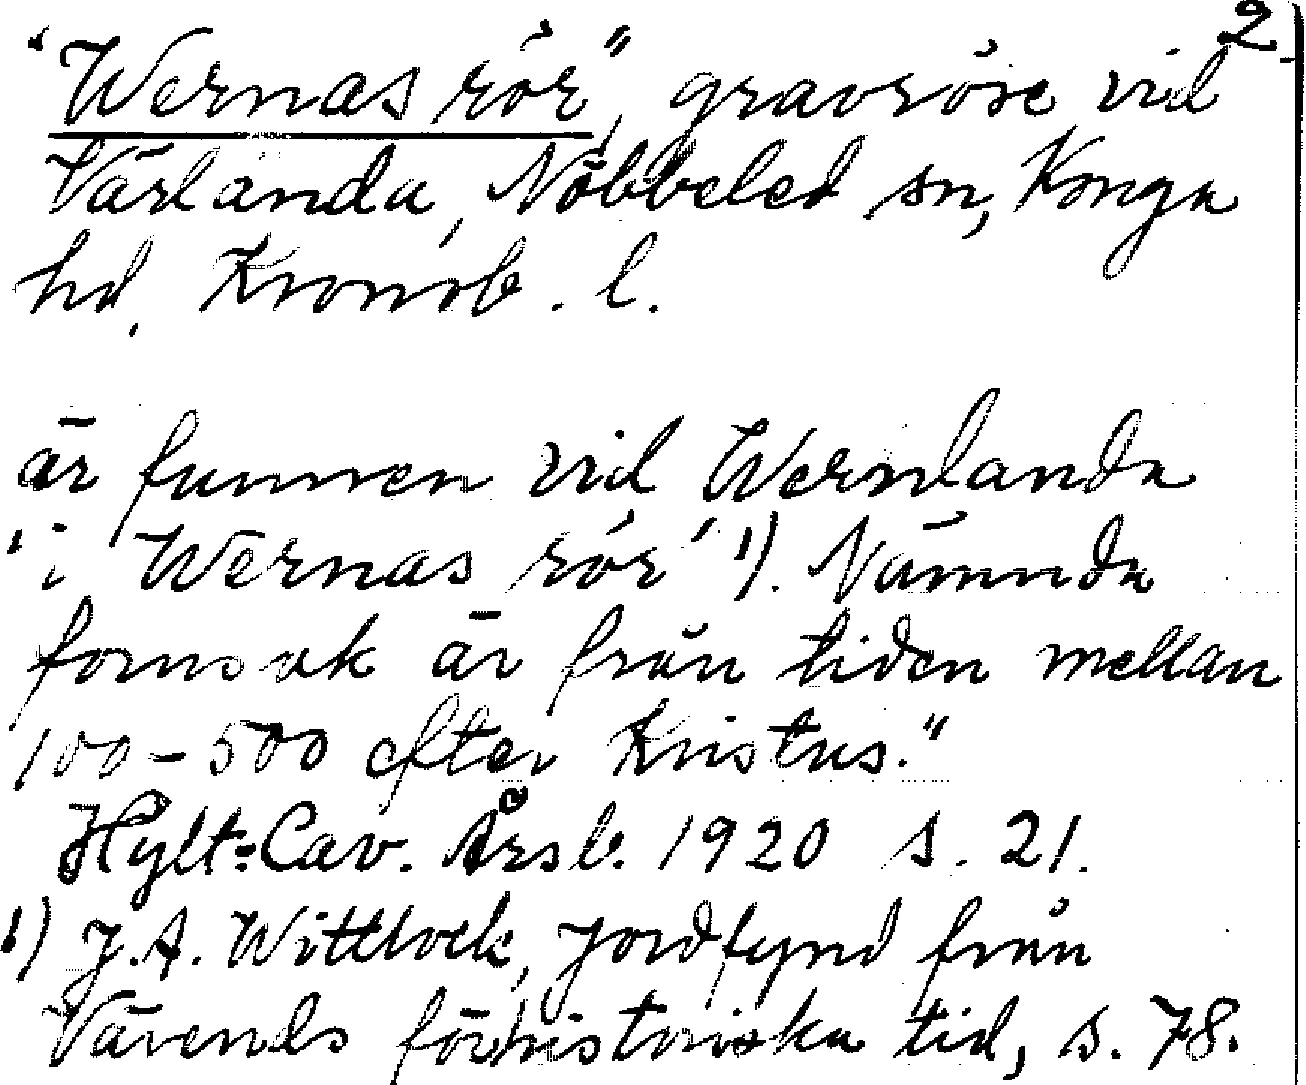 2
"Wernas rör", gravröse vid
Värlanda, Nöbbeled sn, Konga
hd, Kronob. l.
är funnen vid Wernlanda
'i Wernas rör' 1). Nämnda
fornsak är från tiden mellan
100-500 efter Kristus."
Hylt-Cav. Årsb. 1920 s. 21.
1) J.A. Wittlock, Jordfynd från
Värends förhistoriska tid, s. 78.